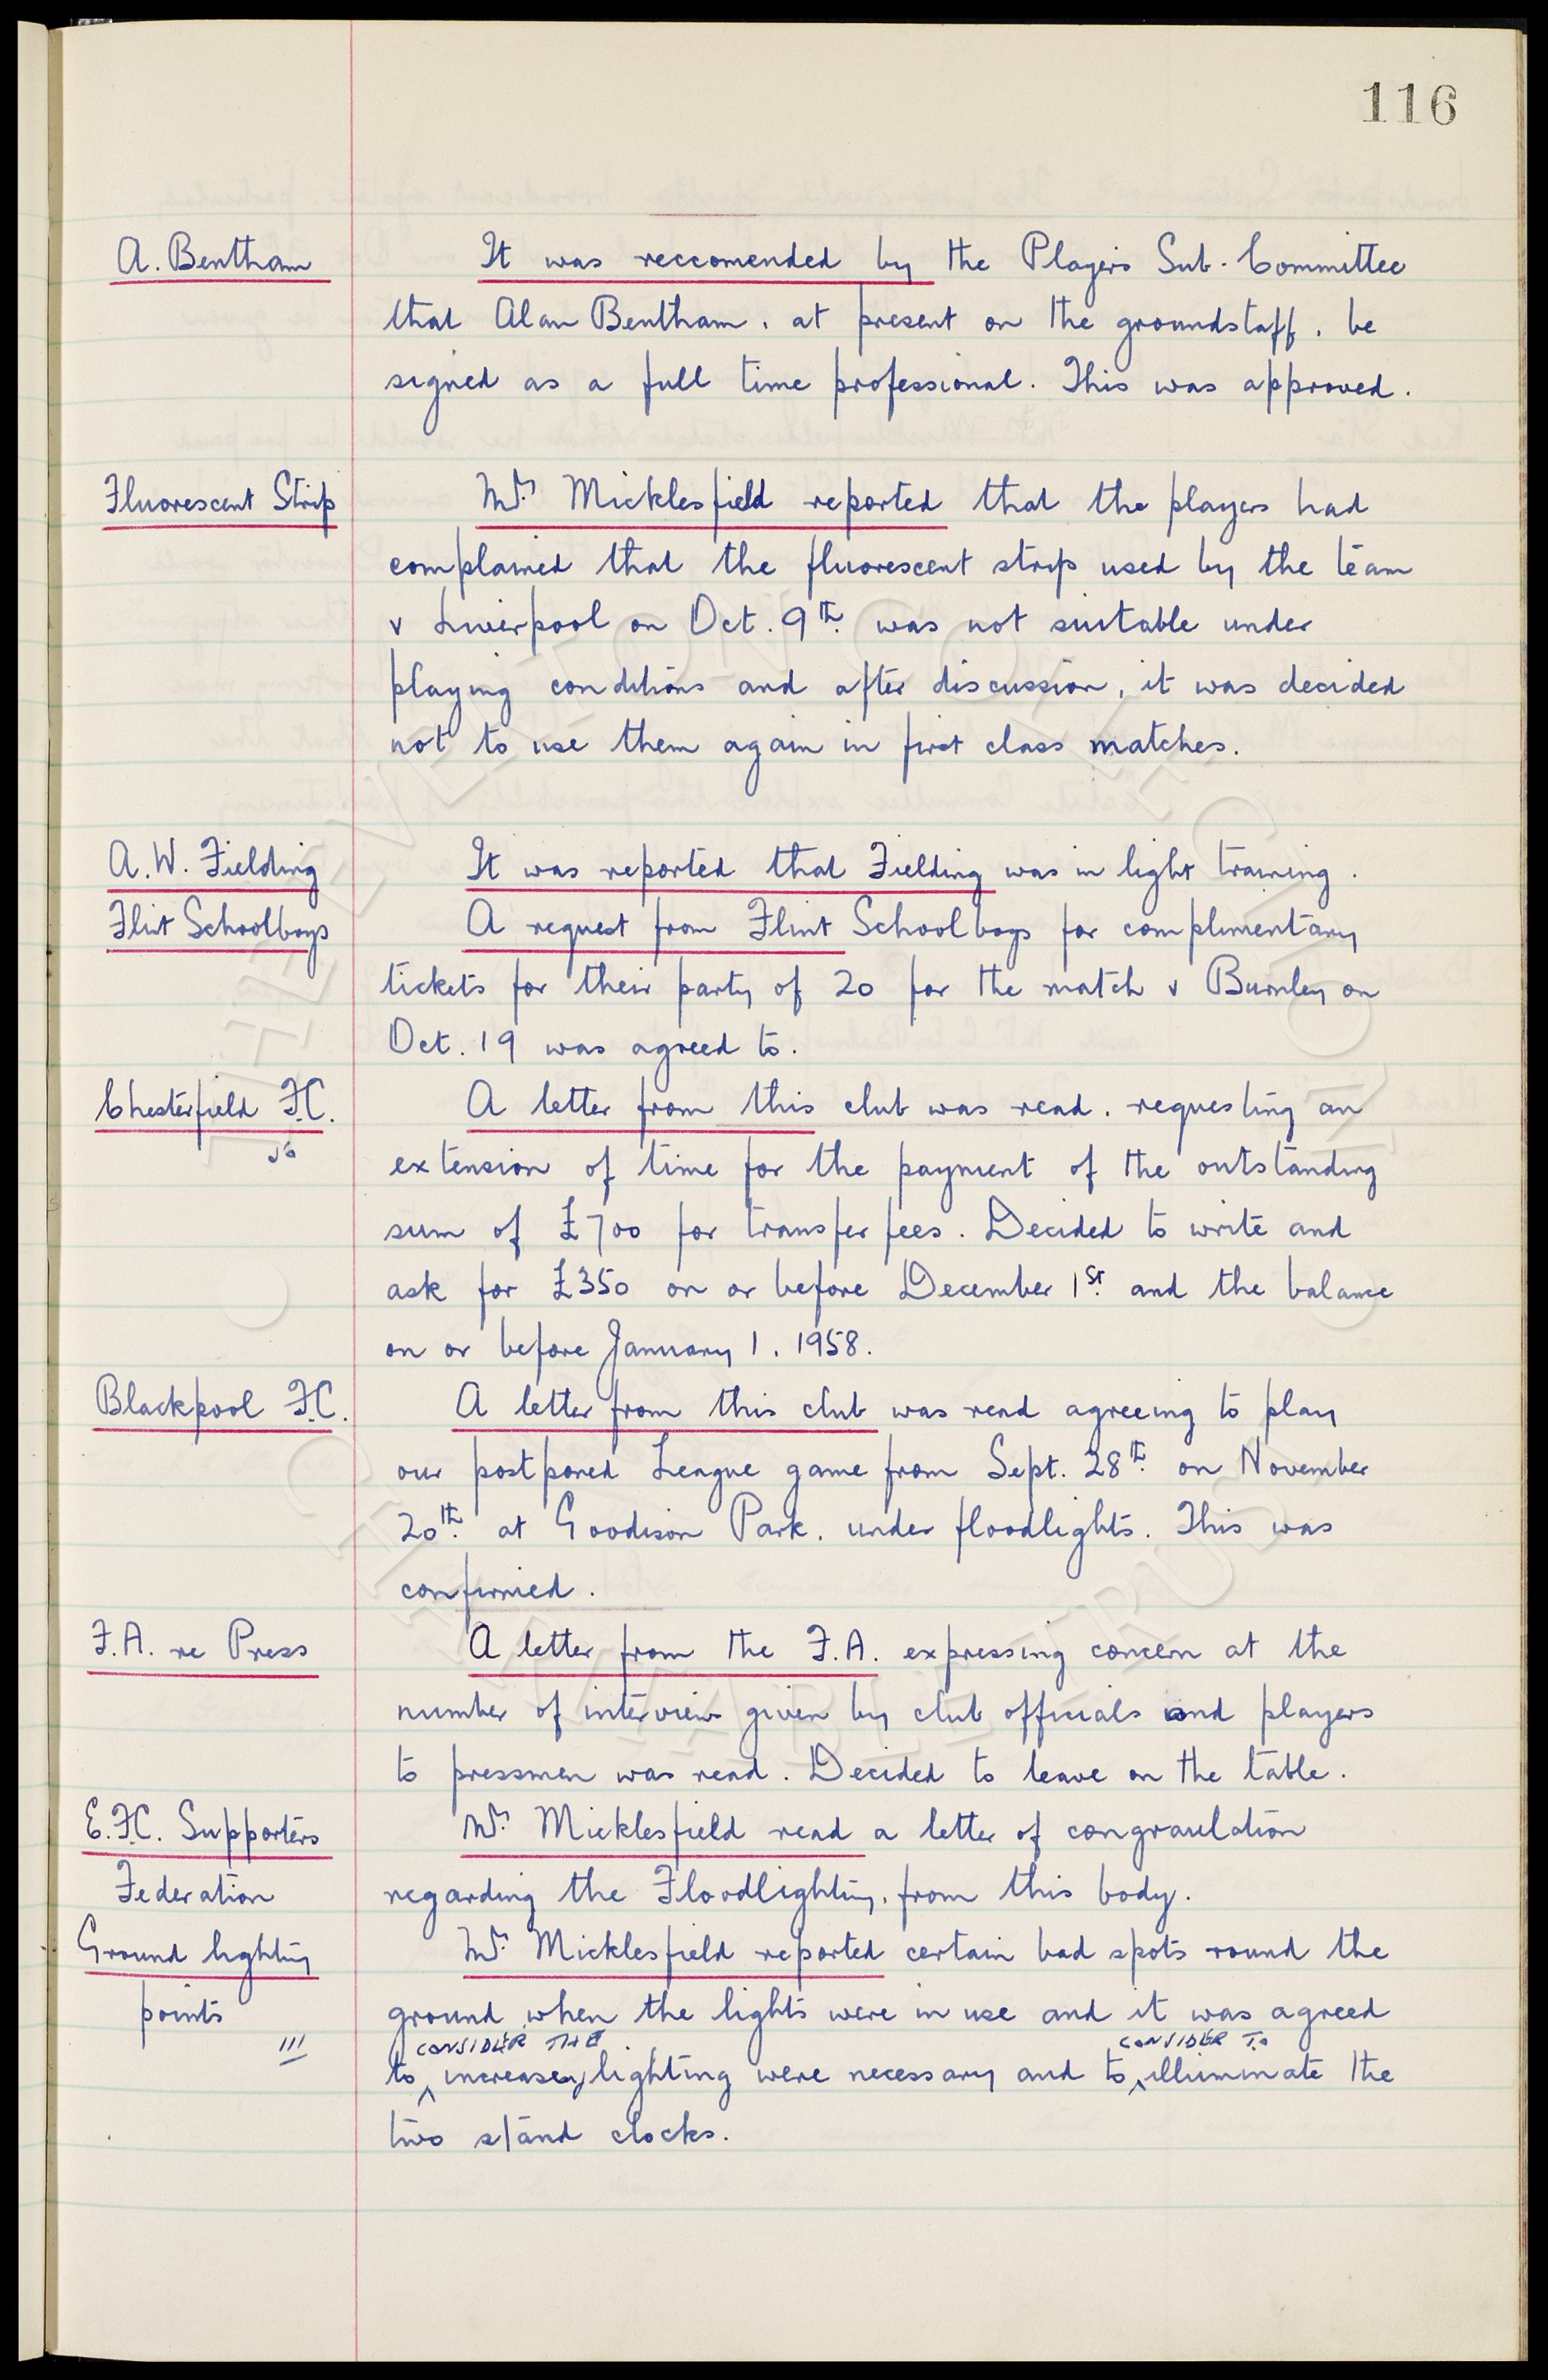 116
A. Bentham
It was reccomended by the Players Sub-Committee
that Alan Bentham, at present on the groundstaff, be
signed as a full time professional. This was approved.
Fluorescent Strip
Mr. Micklesfield reported that the players had
complained that the fluorescent strip used by the team
v Liverpool on Oct. 9th. was not suitable under
playing conditions and after discussion, it was decided
not to use them again in first class matches.
A. W. Fielding
It was reported that Fielding was in light training.
Flint Schoolboys
A request from Flint Schoolboys for complimentary
tickets for their party of 20 for the match v Burnley on
Oct. 19 was agreed to.
Chesterfield F.C.
A letter from this club was read, requesting an
extension of time for the payment of the outstanding
sum of £700 for transfer fees. Decided to write and
ask for £350 on or before December 1st. and the balance
on or before January 1, 1958.
Blackpool F.C.
A letter from this club was read agreeing to play
our postponed League game from Sept. 28th. on November
20th. at Goodison Park, under floodlights. This was
confirmed.
F.A. re Press
A letter from the F.A. expressing concern at the
number of interview given by club officials and players
to pressmen was read. Decided to leave on the table.
E.F.C. Supporters
Federation
Mr. Micklesfield read a letter of congraulation
regarding the Floodlighting, from this body.
Ground lighting
points
Mr. Micklesfield reported certain bad spots round the
ground when the lights were in use and it was agreed
CONSIDER THE CONSIDER TO
to increase lighting were necessary and to illuminate the
two stand clocks.